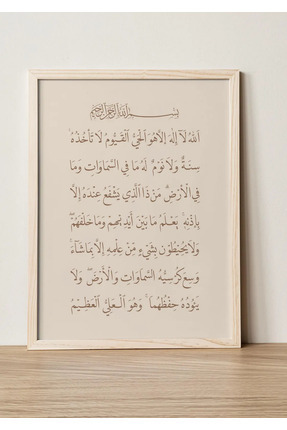 بسم الله الرحمن الرحيم
اَللّٰهُ لَآ اِلٰهَ اِلَّا هُوَ اَلْحَيُّ الْقَيُّومُ لَا تَأْخُذُهُ
سِنَةٌ وَلَا نَوْمٌ لَهُ مَا فِي السَّمَاوَاتِ وَمَا
فِي الْاَرْضِ مَنْ ذَا الَّذِي يَشْفَعُ عِنْدَهُ اِلَّا
بِاِذْنِهِ يَعْلَمُ مَا بَيْنَ اَيْدِيهِمْ وَمَا خَلْفَهُمْ
وَلَا يُحِيطُونَ بِشَيْءٍ مِنْ عِلْمِهِ اِلَّا بِمَا شَاءَ
وَسِعَ كُرْسِيُّهُ السَّمَاوَاتِ وَالْاَرْضَ وَلَا
يَؤُدُهُ حِفْظُهُمَا وَهُوَ الْعَلِيُّ الْعَظِيمُ